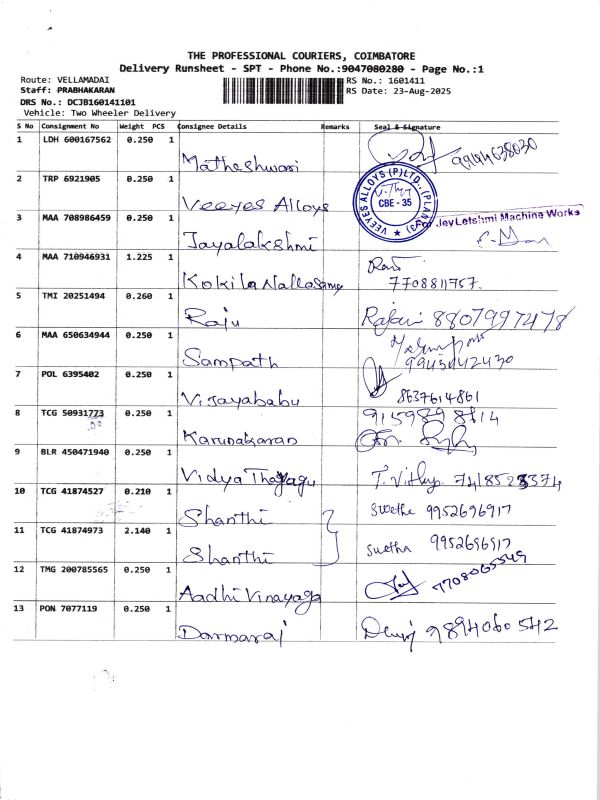 THE PROFESSIONAL COURIERS, COIMBATORE
Delivery Runsheet - SPT - Phone No.:9047080280 - Page No.:1
Route: VELLAMADAI RS No.: 1601411
Staff: PRABHAKARAN RS Date: 23-Aug-2025
DRS No.: DCJB160141101
Vehicle: Two Wheeler Delivery
S No Consignment No Weight PCS Consignee Details Remarks Seal & Signature
1 LDH 600167562 0.250 1 Matheshwari
2 TRP 6921905 0.250 1 Veeyes Alloys
VEEYES ALLOYS (P) LTD., (PLANT
CBE - 35
3 MAA 708986459 0.250 1 Jayalakshmi
Jey Letshmi Machine Works
4 MAA 710946931 1.225 1 Kokila Nallasamy
7708811757.
5 TMI 20251494 0.260 1 Raju Rajani 8807997478
6 MAA 650634944 0.250 1 Sampath
7 POL 6395402 0.250 1 Vijayababu 8637614861
8 TCG 50931773 0.250 1 Karunakaran
9 BLR 450471940 0.250 1 Vidya Thayagu
10 TCG 41874527 0.210 1 Shanthi Swetha 9952696917
11 TCG 41874973 2.140 1 Shanthi Swetha 9952696917
12 TMG 200785565 0.250 1 Aadhi Vinayaga 7708065549
13 PON 7077119 0.250 1 Darmaraj 9894060542